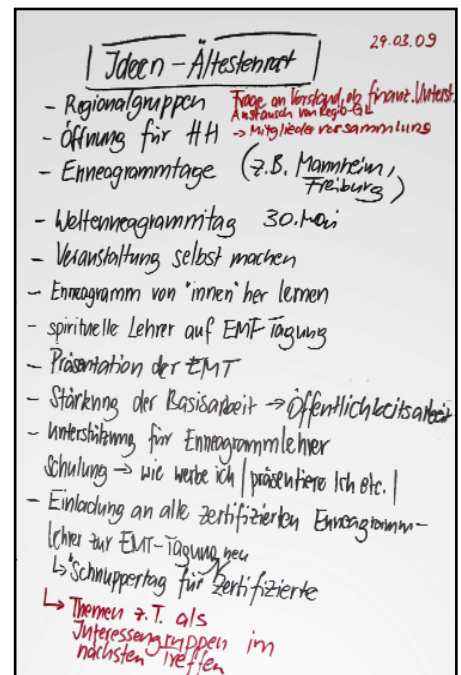 29.03.09
Ideen - Ältestenrat
- Regionalgruppen Frage an Vorstand, ob finanz. Unterst.
Austausch von Regio-Gr.
→ Mitgliederversammlung
- Öffnung für HH
- Enneagrammtage (z.B. Mannheim,
Freiburg)
- Weltenneagrammtag 30. Mai
- Veranstaltung selbst machen
- Enneagramm von "innen" her lernen
- spirituelle Lehrer auf EMT-Tagung
- Präsentation der EMT
- Stärkung der Basisarbeit → Öffentlichkeitsarbeit
- Unterstützung für Enneagrammlehrer
Schulung → wie werbe ich | präsentiere ich etc. |
- Einladung an alle zertifizierten Enneagramm-
lehrer zur EMT-Tagung neu
↳ "Schnuppertag für Zertifizierte
↳ Themen z.T. als
Interessengruppen im
nächsten Treffen